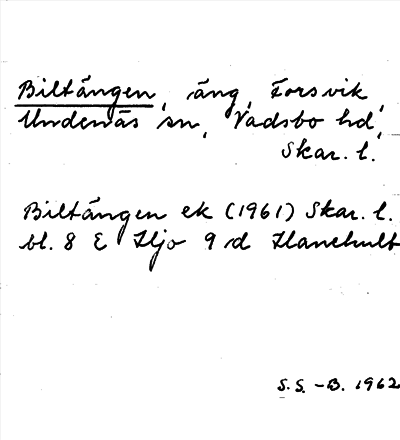 Biltängen, äng, Forsvik,
Undenäs sn, Vadsbo hd,
Skar. l.
Biltängen ek (1961) Skar. l.
bl. 8 E Hjo 9 d Hanehult
S.S. -B. 1962